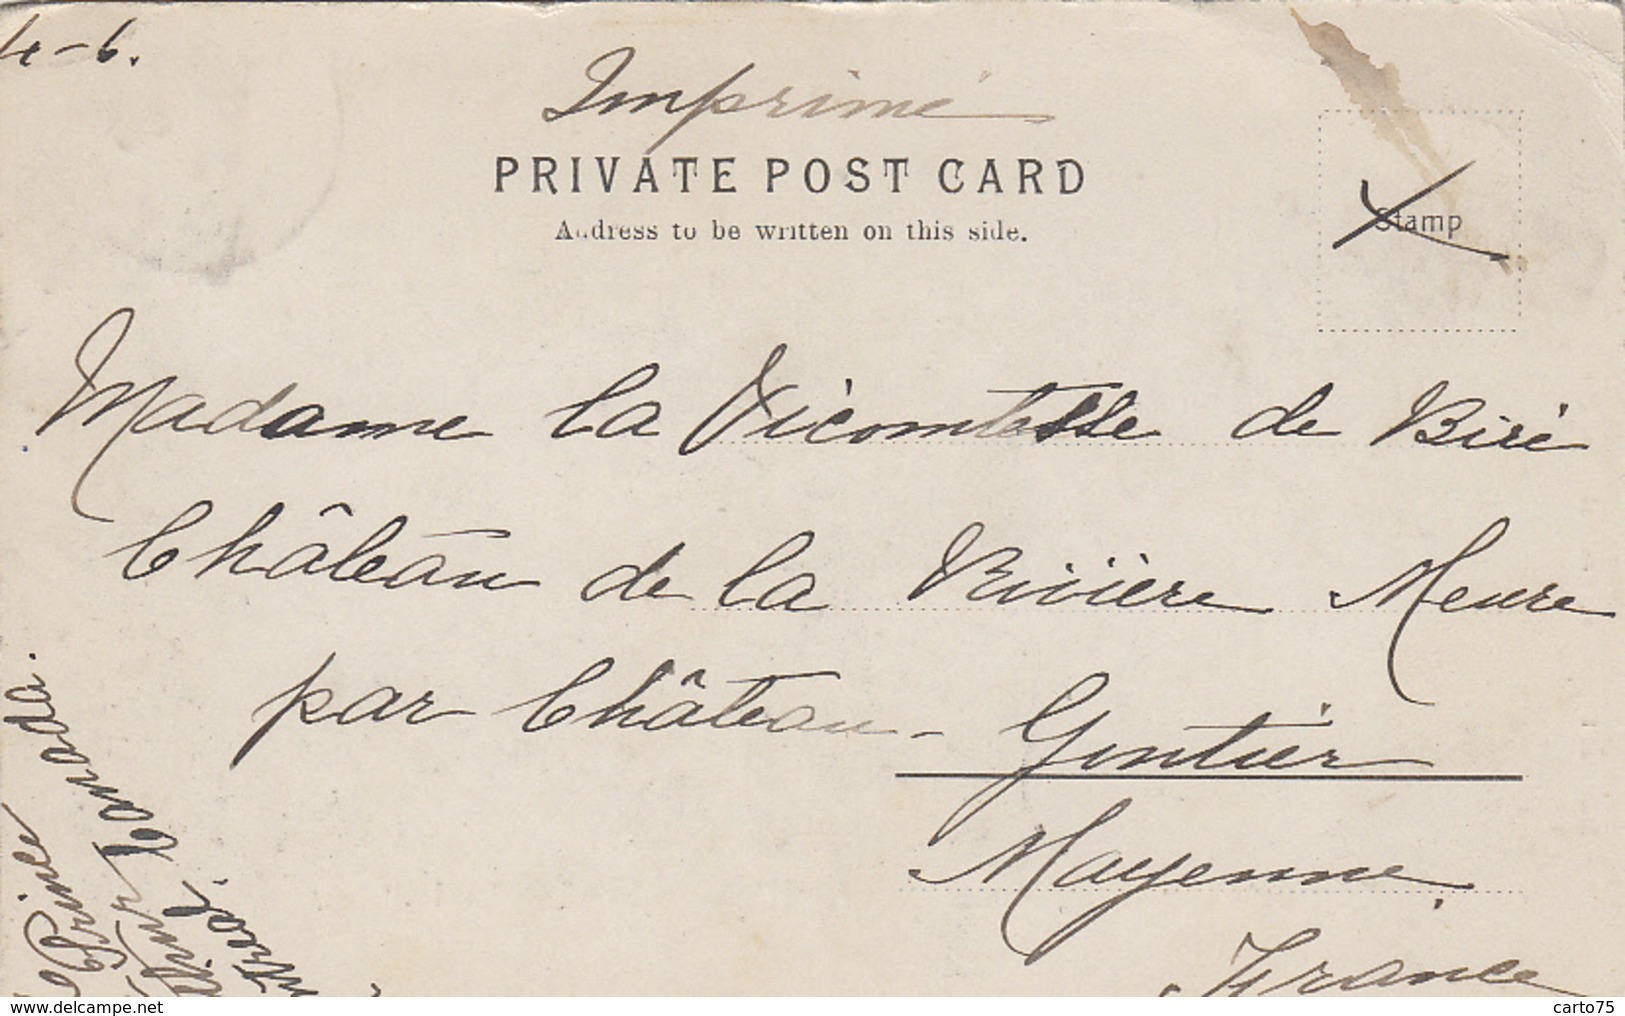 4-6.
Imprimé
PRIVATE POST CARD
Address to be written on this side.
Stamp
Madame la Vicomtesse de Biré
Château de la Rivière Meure
par Château-Gontier
Mayenne,
France
Prince
Arthur
Canada.
delcampe.net
carto75